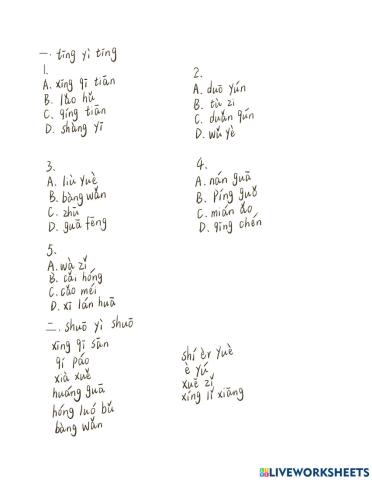 一. tīng yì tīng
1.
A. xīng qī tiān
B. lǎo hǔ
C. qíng tiān
D. shàng yī
2.
A. duō yún
B. tù zi
C. duǎn qún
D. wǔ yè
3.
A. liù yuè
B. bàng wǎn
C. zhū
D. guā fēng
4.
A. nán guā
B. Píng guǒ
C. mián ǎo
D. qīng chén
5.
A. wà zǐ
B. cǎi hóng
C. cǎo méi
D. xī lán huā
二. shuō yì shuō
xīng qī sān
qí páo
xià xuě
huáng guā
hóng luó bǔ
bàng wǎn
shí èr yuè
è yú
xuē zǐ
xíng lǐ xiāng
LIVEWORKSHEETS